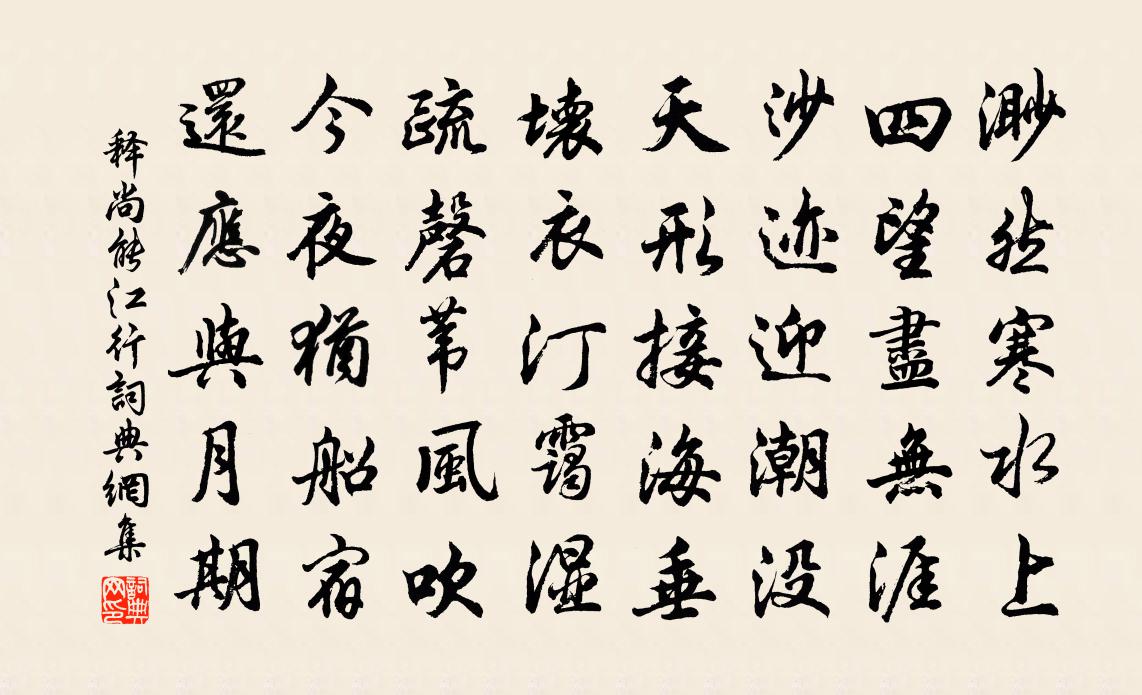 渺然寒水上
四望盡無涯
沙迹迎潮没
天形接海垂
壊衣汀靄湿
疏磬苇風吹
今夜猶船宿
還應與月期
释尚能江行詞典網集
詞典網印